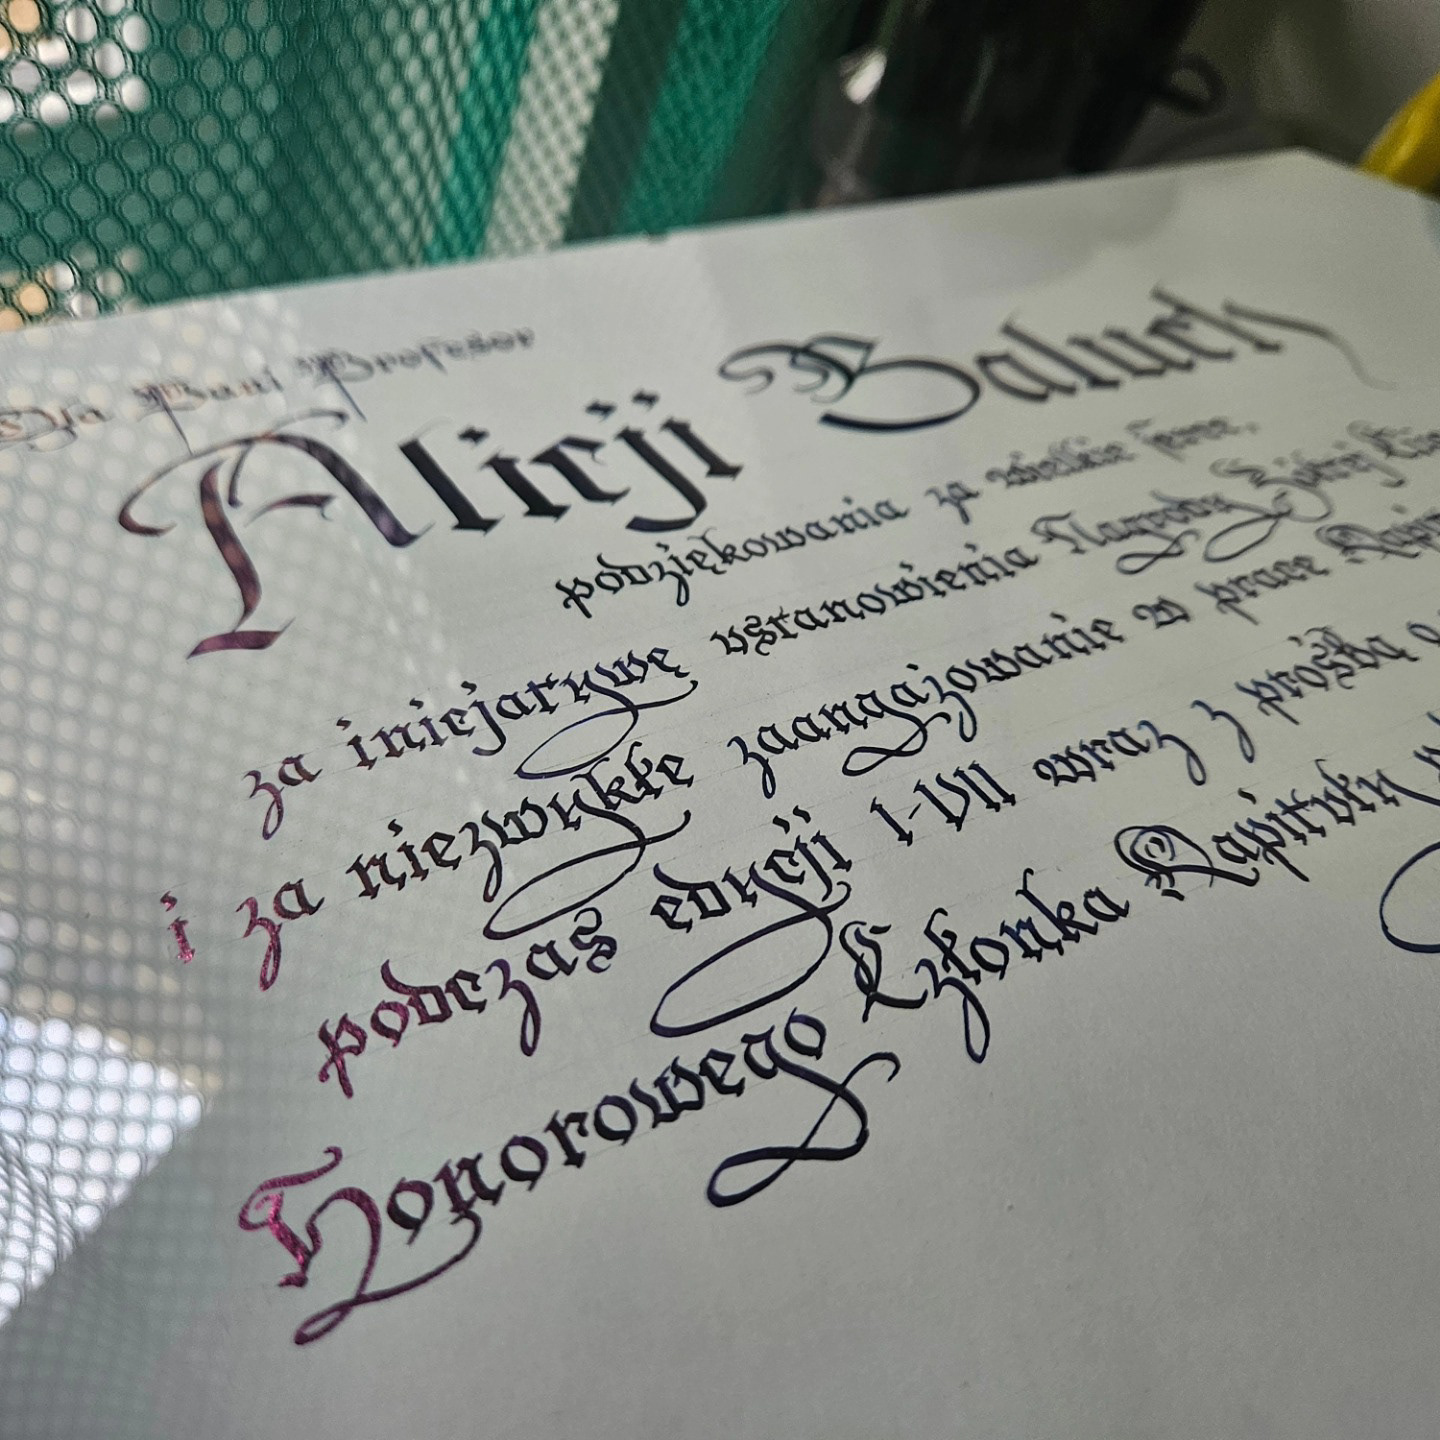 Dla Pani Profesor
Alicji Baluch
podziękowania za wielkie serce,
za inicjatywę ustanowienia Nagrody Żółtej
i za niezwykłe zaangażowanie w prace
podczas edycji I-VII wraz z prośbą
Honorowego Członka Kapituły